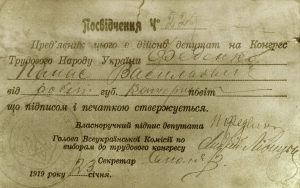 Посвідчення Ч
Пред'явник цього є дійсно депутат на Конгрес
Трудового Народу України Феденко
Панас Васильович
від губ. Катерин повіт
що підписом і печаткою стверджується.
Власноручний підпис депутата П Феденко
Голова Всеукраїнської Комісії по
виборам до трудового конгресу
Секретар
1919 року 23 січня.